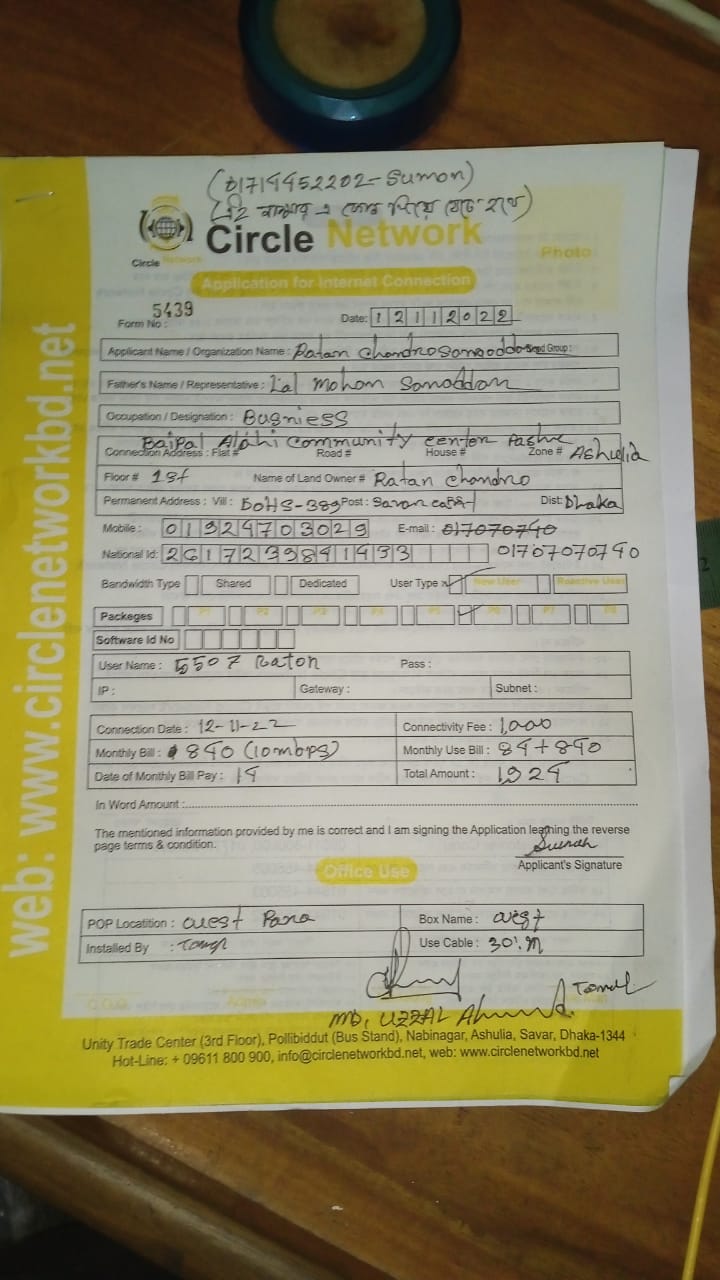 (01714452202-Sumon)
Circle Network
Circle Network
Photo
Application for Internet Connection
Form No : 5439
Date: 12112022
Applicant Name / Organization Name : Ratan Chandro Group :
Father's Name / Representative : Lal Mohon
Occupation / Designation : Busniess
Baipal Alahi Community center Pashe
Connection Address : Flat # Road # House # Zone # Ashulia
Floor # 1st Name of Land Owner # Ratan Chandro
Permanent Address : Vill : DOHS-389 Post : Savar Dist: Dhaka
Mobile : 01924703029 E-mail :
National Id: 2617239841433 01707070740
Bandwidth Type Shared Dedicated User Type New User Reactive User
Packeges P1 P2 P3 P4 P5 P6 P7 P8
Software Id No
User Name : 5507 Raton Pass :
IP : Gateway : Subnet :
Connection Date : 12-11-22 Connectivity Fee : 1,000
Monthly Bill : 840 (10mbps) Monthly Use Bill : 84+840
Date of Monthly Bill Pay : 14 Total Amount : 1924
In Word Amount :
The mentioned information provided by me is correct and I am signing the Application learning the reverse
page terms & condition.
Applicant's Signature
Office Use
POP Locatition : West Para Box Name : West
Installed By : Use Cable : 30'.M
MD, UZZAL Ahmed.
Unity Trade Center (3rd Floor), Pollibiddut (Bus Stand), Nabinagar, Ashulia, Savar, Dhaka-1344
Hot-Line: + 09611 800 900, info@circlenetworkbd.net, web: www.circlenetworkbd.net
web: www.circlenetworkbd.net